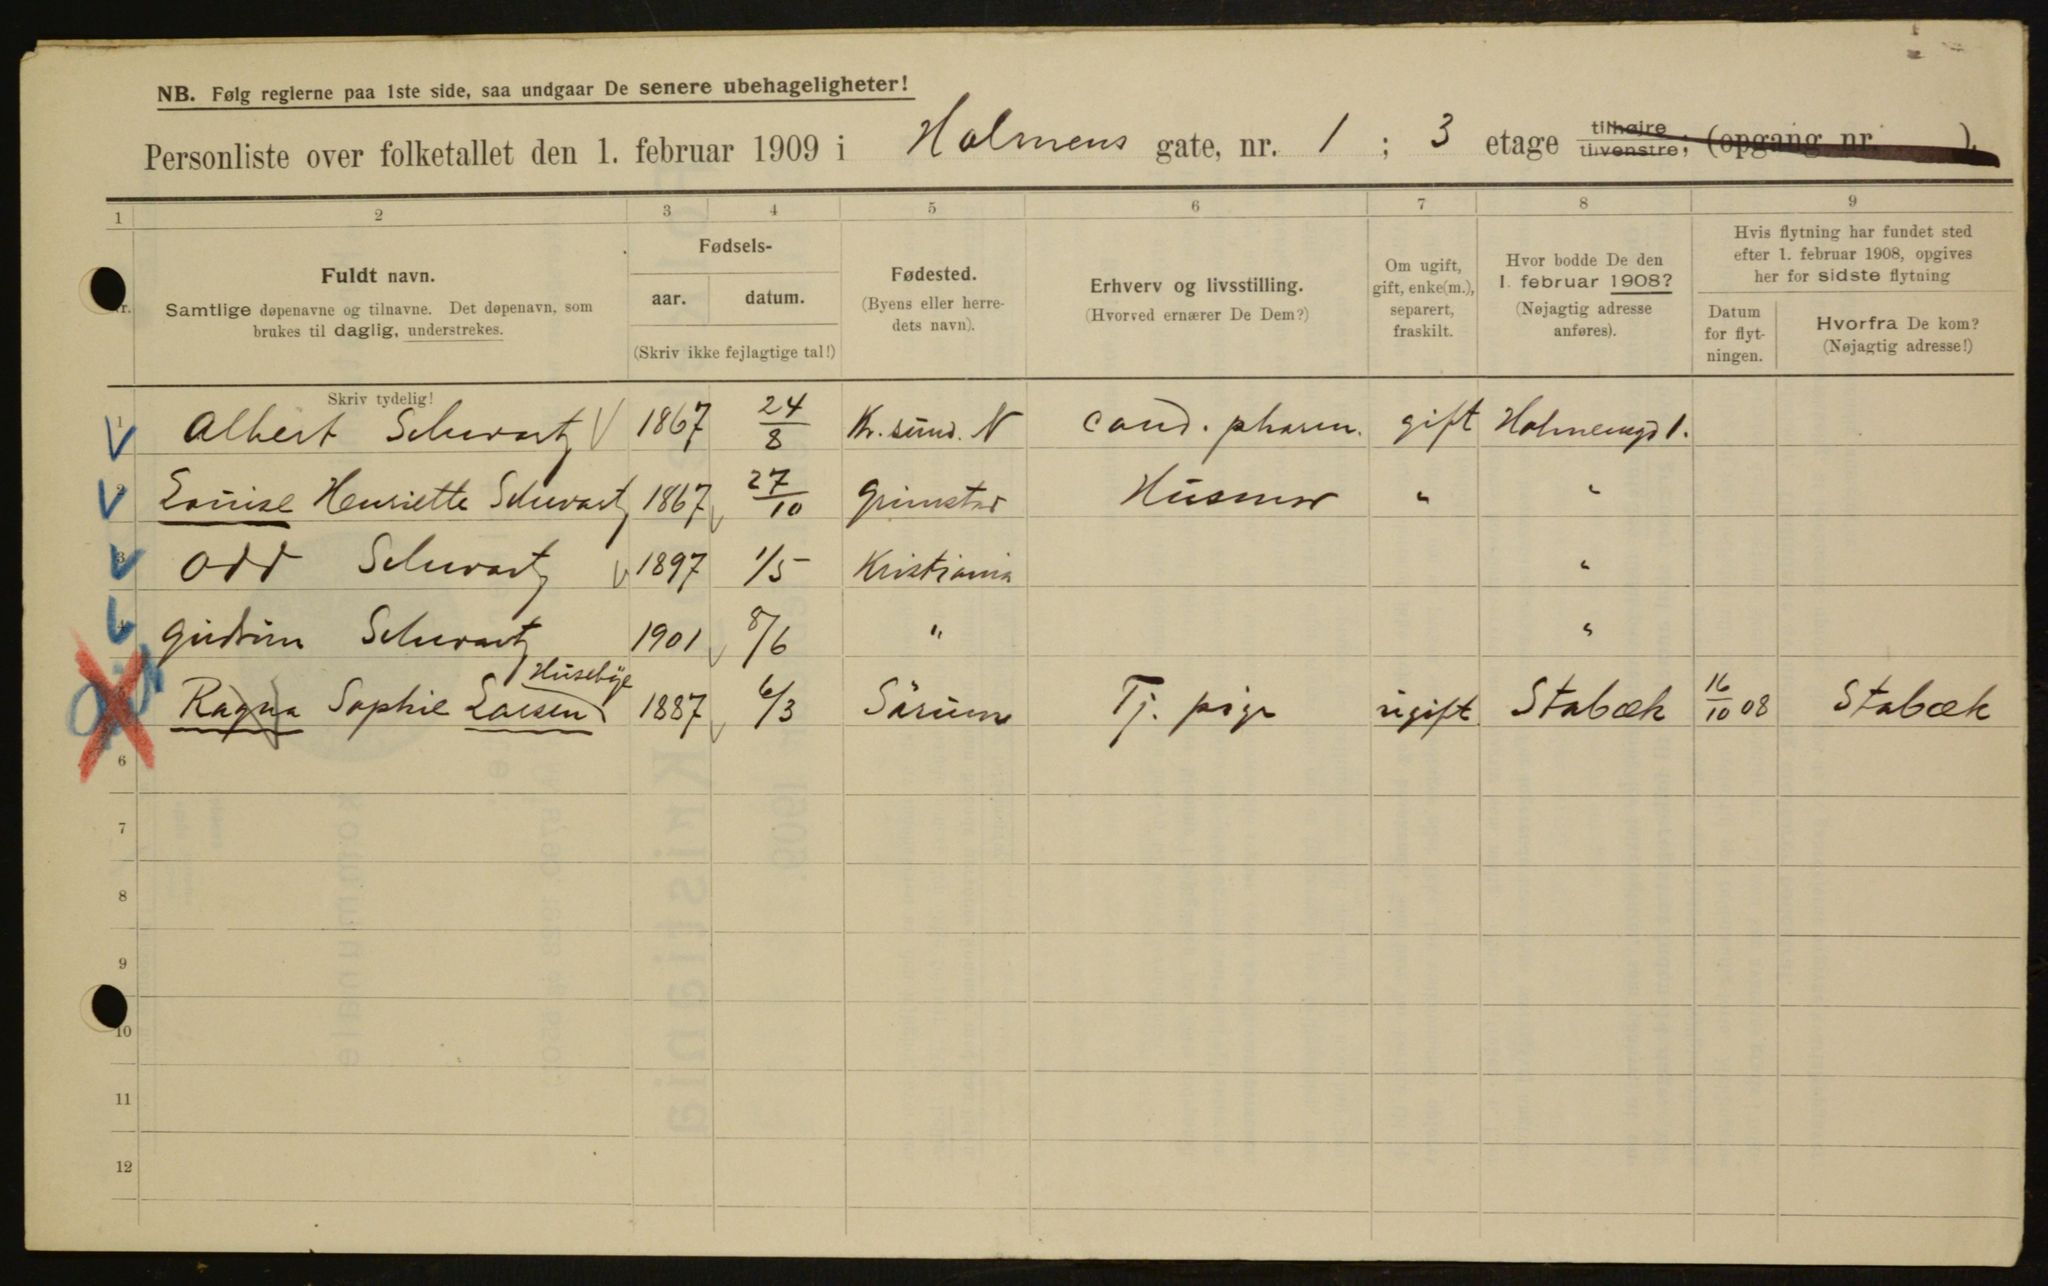 NB. Følg reglerne paa 1ste side, saa undgaar De senere ubehageligheter!
Personliste over folketallet den 1. februar 1909 i Holmens gate, nr. 1 ; 3 etage tilhøjre tilvenstre; (opgang nr. ).
1 2 3 4 5 6 7 8 9
Nr.
Fuldt navn.
Samtlige døpenavne og tilnavne. Det døpenavn, som
brukes til daglig, understrekes.
Fødsels-
aar. datum.
(Skriv ikke fejlagtige tal!)
Fødested.
(Byens eller herre-
dets navn).
Erhverv og livsstilling.
(Hvorved ernærer De Dem?)
Om ugift,
gift, enke(m.),
separert,
fraskilt.
Hvor bodde De den
1. februar 1908?
(Nøjagtig adresse
anføres).
Hvis flytning har fundet sted
efter 1. februar 1908, opgives
her for sidste flytning
Datum
for flyt-
ningen.
Hvorfra De kom?
(Nøjagtig adresse!)
Skriv tydelig!
1 Albert Schwartz 1867 24/8 Kr.sund. N cand. pharm. gift Holmensgd 1.
2 Louise Henriette Schwartz 1867 27/10 Grimstad Husmor " "
3 Odd Schwartz 1897 1/5 Kristiania "
4 Gudrun Schwartz 1901 8/6 " "
Husebye
Ragna Sophie Larsen 1887 6/3 Sørum Tj. pige ugift Stabæk 16/10 08 Stabæk
6
7
8
9
10
11
12